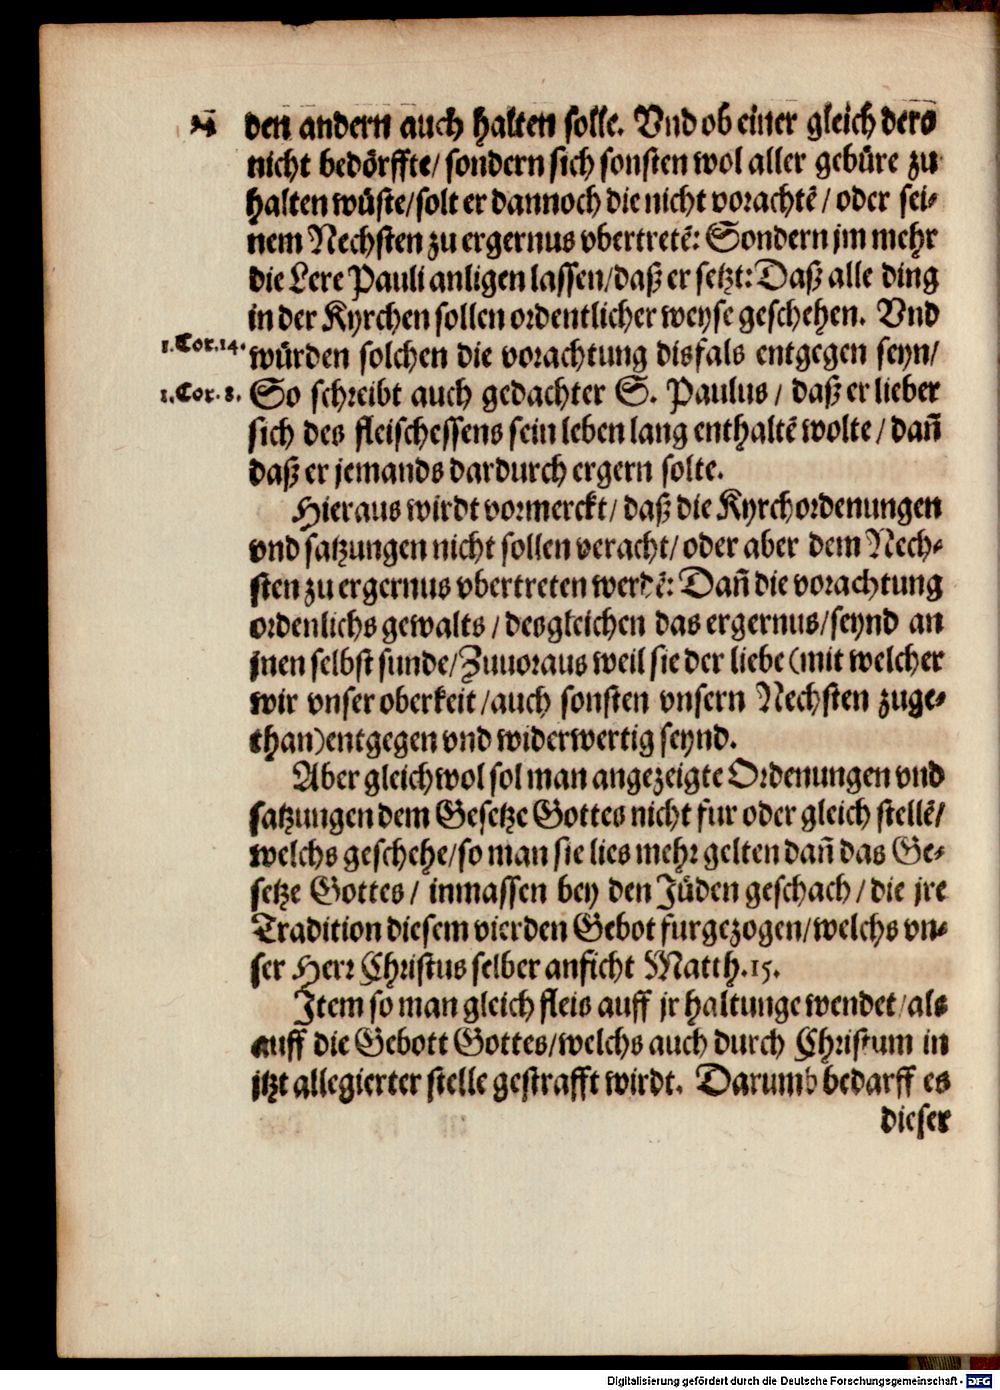 den andern auch halten solle. Vnd ob einer gleich dero
nicht bedörffte/ sondern sich sonsten wol aller gebüre zu
halten wüste/ solt er dannoch die nicht vorachtẽ/ oder sei-
nem Nechsten zu ergernus vbertretẽ: Sondern jm mehr
die Lere Pauli anligen lassen/ daß er setzt: Daß alle ding
in der Kyrchen sollen ordentlicher weyse geschehen. Vnd
1. Cor. 14.
würden solchen die vorachtung disfals entgegen seyn/
1. Cor. 8.
So schreibt auch gedachter S. Paulus/ daß er lieber
sich des fleischessens sein leben lang enthaltẽ wolte/ dañ
daß er jemands dardurch ergern solte.
Hieraus wirdt vormerckt/ daß die Kyrchordenungen
vnd satzungen nicht sollen veracht/ oder aber dem Nech-
sten zu ergernus vbertreten werdẽ: Dañ die vorachtung
ordenlichs gewalts/ desgleichen das ergernus/ seynd an
jnen selbst sunde/ Zuuoraus weil sie der liebe (mit welcher
wir vnser oberkeit/ auch sonsten vnsern Nechsten zuge-
than) entgegen vnd widerwertig seynd.
Aber gleichwol sol man angezeigte Ordenungen vnd
satzungen dem Gesetze Gottes nicht fur oder gleich stellẽ/
welchs geschehe/ so man sie lies mehr gelten dañ das Ge-
setze Gottes/ inmassen bey den Jüden geschach/ die jre
Tradition diesem vierden Gebot furgezogen/ welchs vn-
ser Herr Christus selber anficht Matth. 15.
Item so man gleich fleis auff jr haltunge wendet/ als
auff die Gebott Gottes/ welchs auch durch Christum in
jtzt allegierter stelle gestrafft wirdt. Darumb bedarff es
dieser
Digitalisierung gefördert durch die Deutsche Forschungsgemeinschaft - DFG